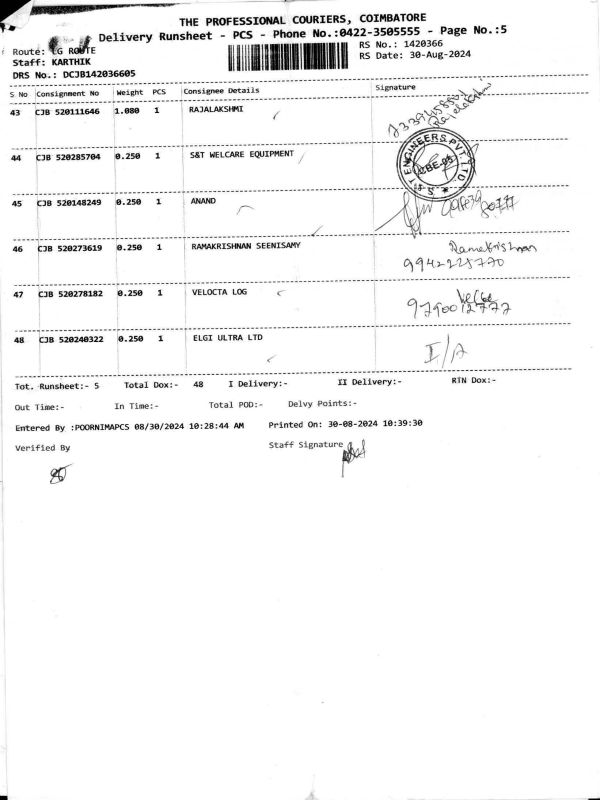 THE PROFESSIONAL COURIERS, COIMBATORE
Delivery Runsheet - PCS - Phone No.:0422-3505555 - Page No.:5
Route: LG ROUTE
RS No.: 1420366
Staff: KARTHIK
RS Date: 30-Aug-2024
DRS No.: DCJB142036605
S No Consignment No Weight PCS Consignee Details Signature
43 CJB 520111646 1.080 1 RAJALAKSHMI
Rajalakshmi
44 CJB 520285704 0.250 1 S&T WELCARE EQUIPMENT
ENGINEERS PVT LTD
CBE-05
45 CJB 520148249 0.250 1 ANAND
46 CJB 520273619 0.250 1 RAMAKRISHNAN SEENISAMY
Ramakrishnan
9942225770
47 CJB 520278182 0.250 1 VELOCTA LOG
9790012777
48 CJB 520240322 0.250 1 ELGI ULTRA LTD
Tot. Runsheet:- 5 Total Dox:- 48 I Delivery:- II Delivery:- RTN Dox:-
Out Time:- In Time:- Total POD:- Delvy Points:-
Entered By :POORNIMAPCS 08/30/2024 10:28:44 AM Printed On: 30-08-2024 10:39:30
Verified By Staff Signature